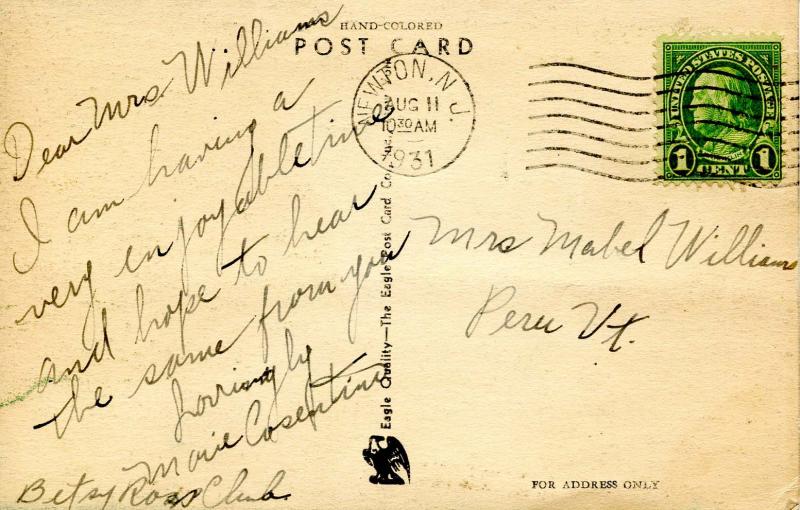 HAND-COLORED
POST CARD
Dear Mrs Williams
I am having a
very enjoyable time
and hope to hear
the same from you
Lovingly
Marie Cosentino
Betsy Ross Club.
NEWTON, N.J.
AUG 11
10 30 AM
1931
UNITED STATES POSTAGE
1 CENT 1
Mrs Mabel Williams
Peru Vt.
Eagle Quality—The Eagle Post Card Co.
FOR ADDRESS ONLY